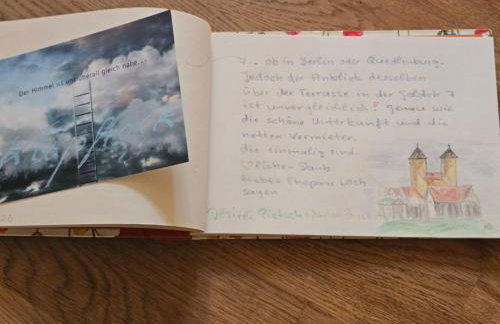 Der Himmel ist uns überall gleich nahe...
... ob in Berlin oder Quedlinburg.
Jedoch der Anblick desselben
über der Terrasse in der
ist unvergleichlich! genau wie
die schöne Unterkunft und die
netten Vermieter,
die einmalig sind.
lichen Dank
liebes Ehepaar
sagen